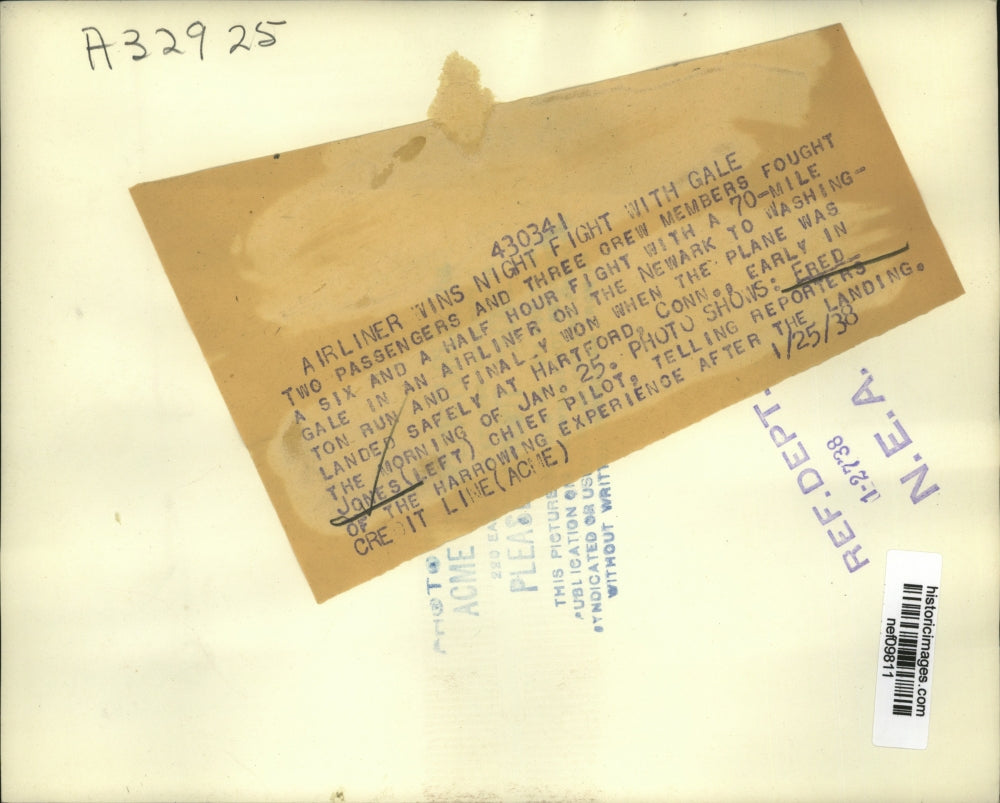 A32925
430341
AIRLINER WINS NIGHT FIGHT WITH GALE
TWO PASSENGERS AND THREE CREW MEMBERS FOUGHT
A SIX AND A HALF HOUR FIGHT WITH A 70-MILE
GALE IN AN AIRLINER ON THE NEWARK TO WASHING-
TON RUN AND FINALLY WON WHEN THE PLANE WAS
LANDED SAFELY AT HARTFORD, CONN., EARLY IN
THE MORNING OF JAN. 25. PHOTO SHOWS: FRED
JONES(LEFT) CHIEF PILOT, TELLING REPORTERS
OF THE HARROWING EXPERIENCE AFTER THE LANDING.
CREDIT LINE(ACME) 1/25/38
PHOTO
ACME
220 EA
PLEAS
THIS PICTURE
PUBLICATION
SYNDICATED OR US
WITHOUT WRIT
REF. DEPT.
1-27-38
N.E.A.
historicimages.com
nef09811